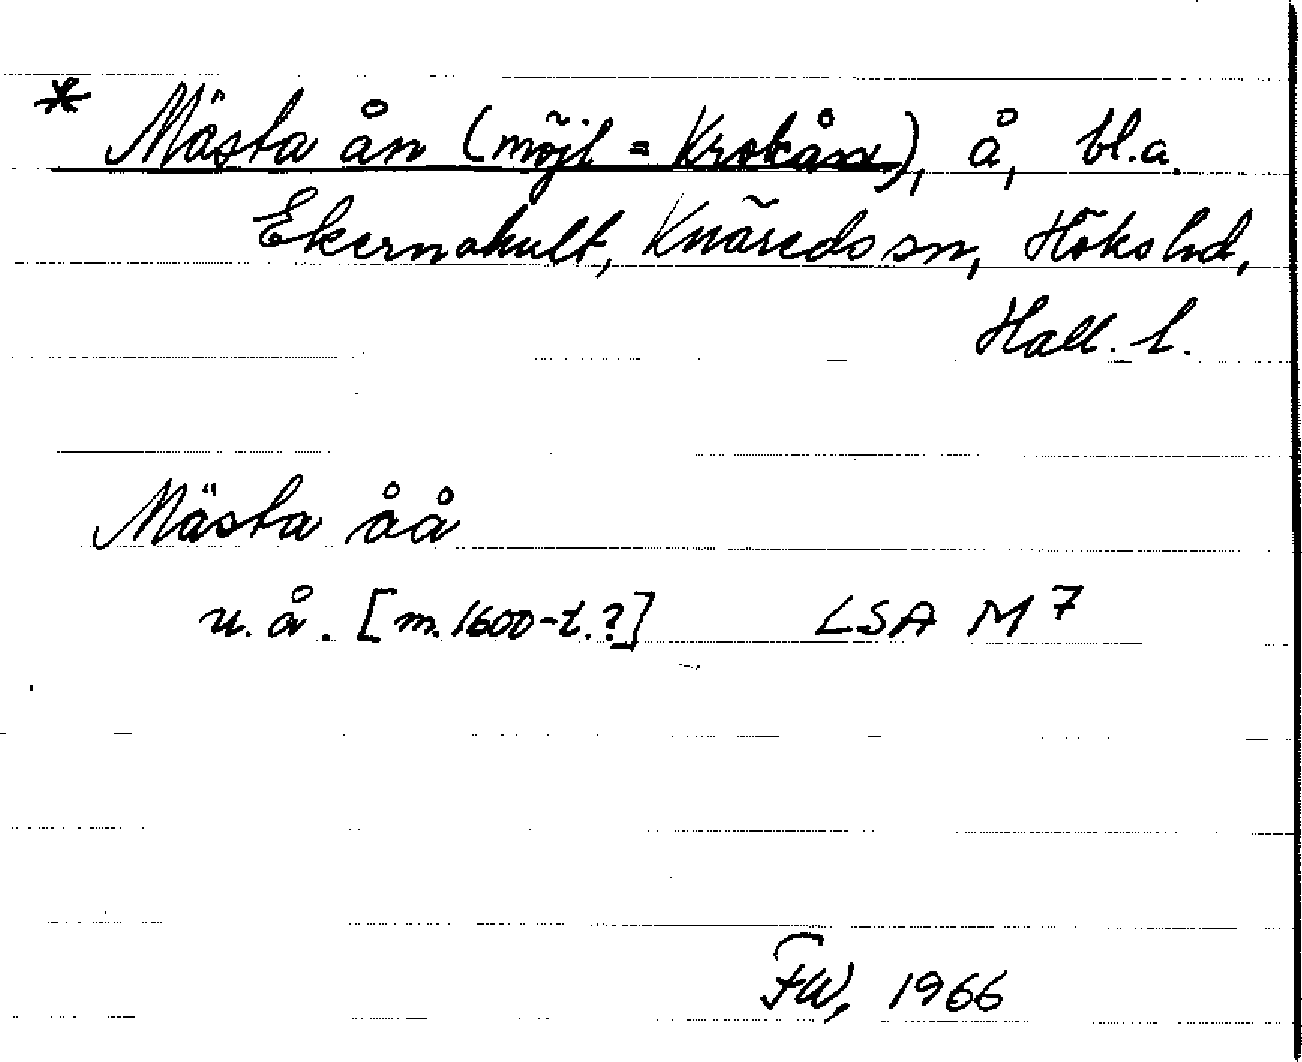 * Mästa ån (möjl = Krokån), å, bl.a.
Ekernahult, Knäreds sn, Höks hd,
Hall. l.
Mästa åå
u. å. [m. 1600-t.?] LSA M 7
FW, 1966